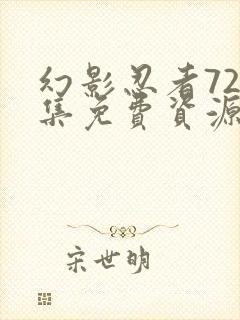 幻影忍者72
集免费資源
宋世明